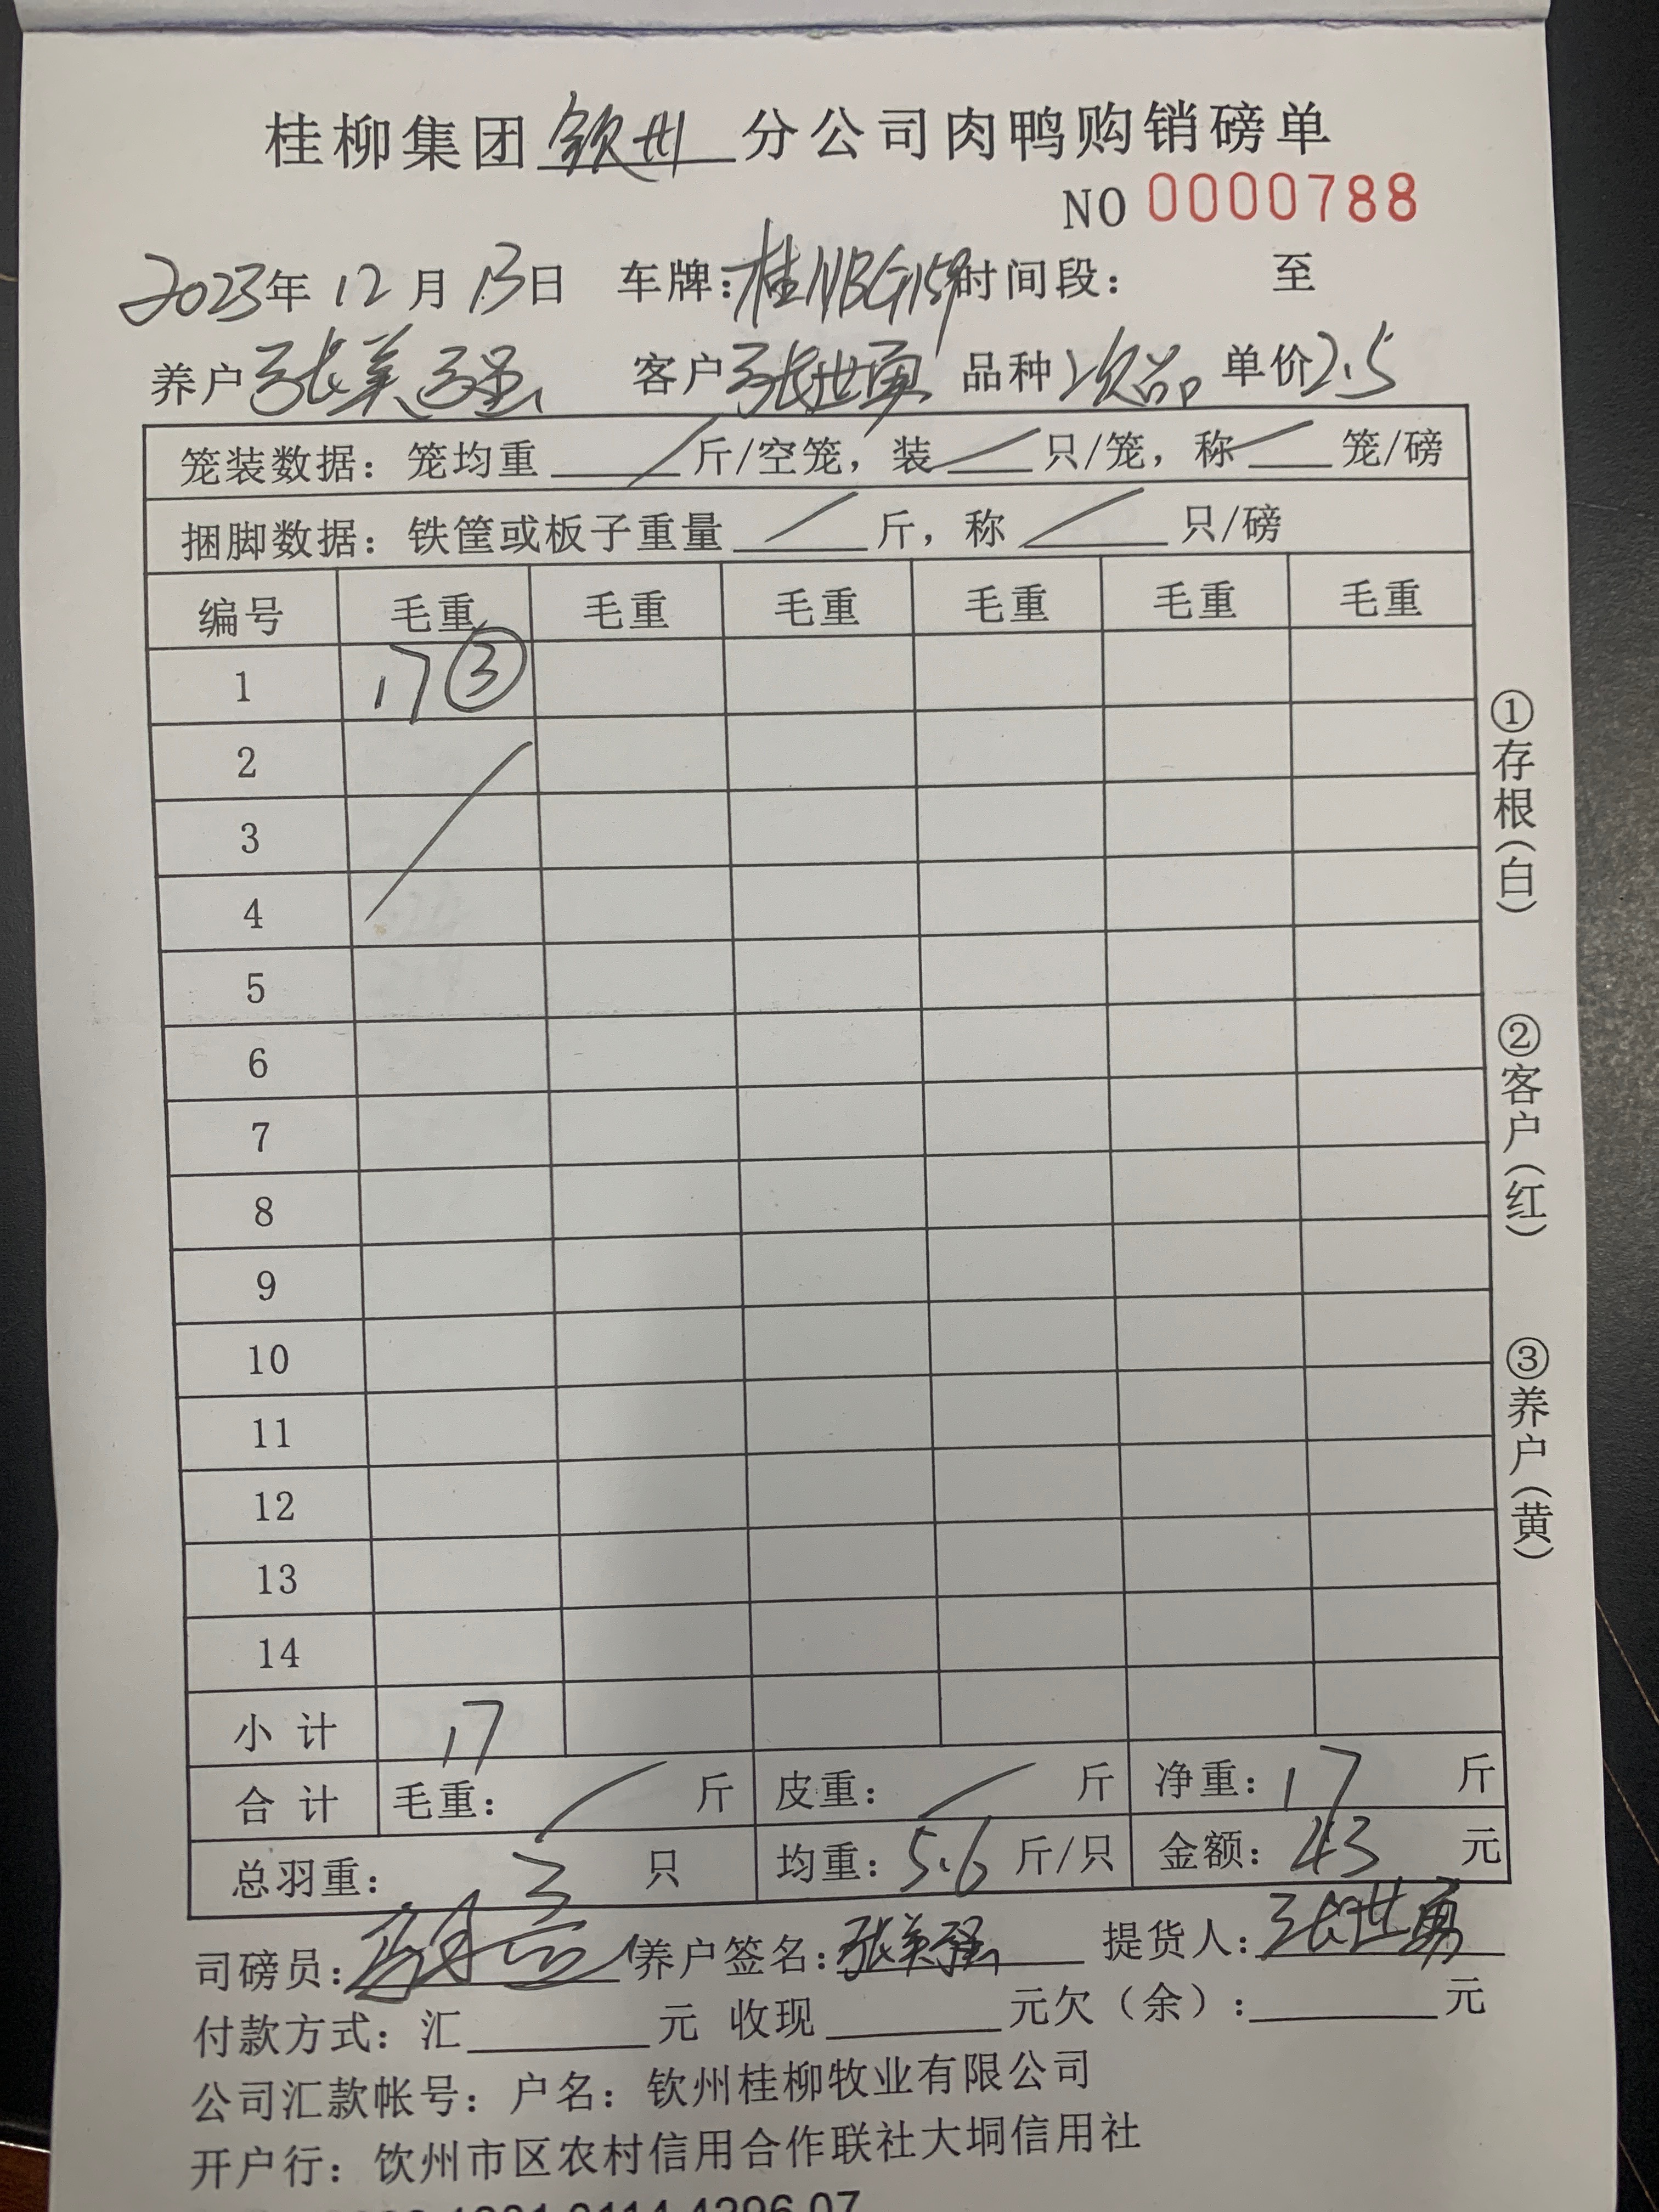 桂柳集团 钦州 分公司肉鸭购销磅单
NO 0000788
2023年 12月 13日 车牌: 时间段: 至
养户 张美强 客户 张世勇 品种 次品 单价 2.5
笼装数据: 笼均重 / 斤/空笼, 装 / 只/笼, 称 / 笼/磅
捆脚数据: 铁筐或板子重量 / 斤, 称 / 只/磅
编号 毛重 毛重 毛重 毛重 毛重 毛重
1 17 ③
2
3
4
5
6
7
8
9
10
11
12
13
14
小计 17
合计 毛重: / 斤 皮重: / 斤 净重: 17 斤
总羽重: 3 只 均重: 5.6 斤/只 金额: 43 元
司磅员: 养户签名: 张美强 提货人: 张世勇
付款方式: 汇 元 收现 元欠(余): 元
公司汇款帐号: 户名: 钦州桂柳牧业有限公司
开户行: 钦州市区农村信用合作联社大垌信用社
①存根(白)
②客户(红)
③养户(黄)